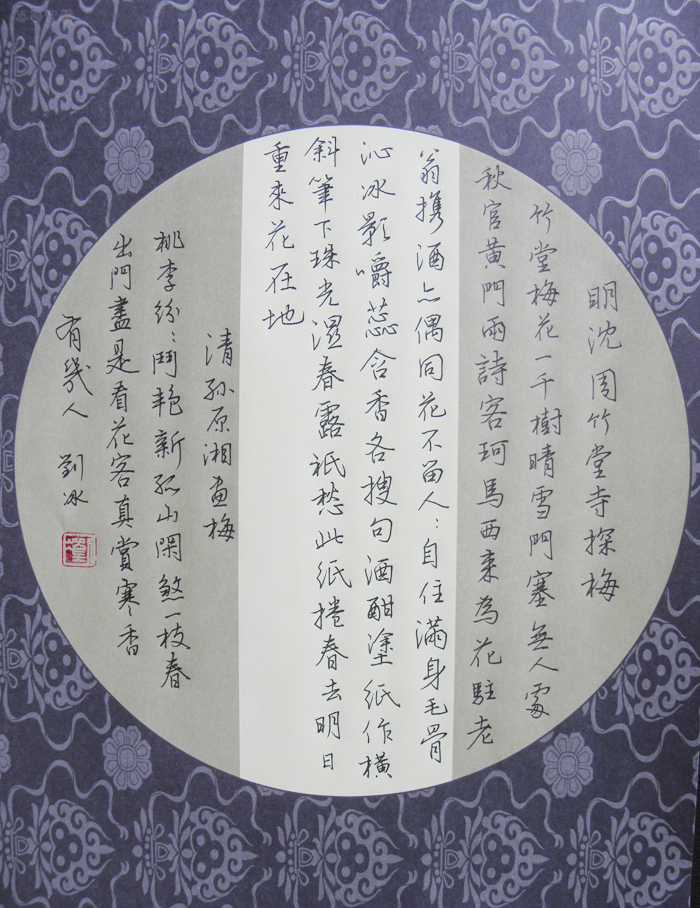 明沈周竹堂寺探梅
竹堂梅花一千樹晴雪門塞無人處
秋官黄門兩詩客珂馬西来為花駐老
翁携酒亦偶同花不留人：自住滿身毛骨
沁冰影嚼蕊含香各搜句酒酣塗紙作橫
斜筆下珠光濕春露祇愁此紙捲春去明日
重來花在地
清孙原湘画梅
桃李纷：鬥艳新孤山閑煞一枝春
出門盡是看花客真賞寒香
有幾人 劉冰